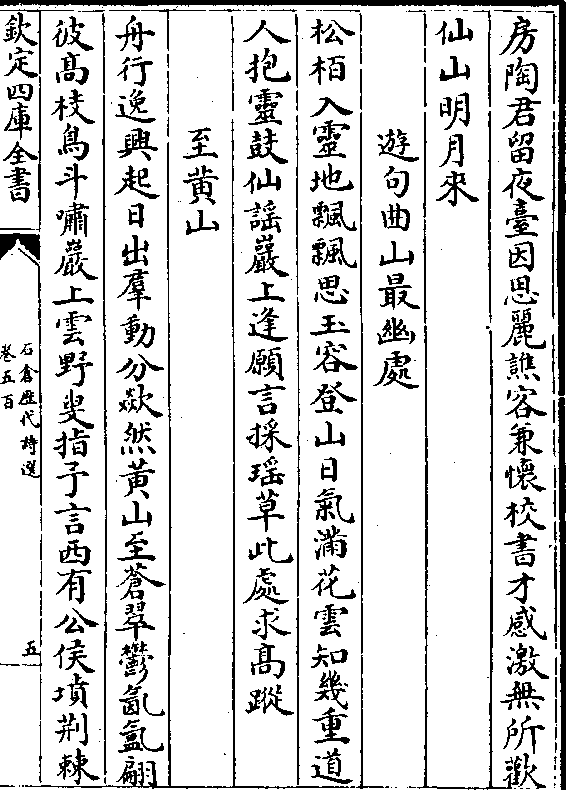 房陶君留夜臺因思麗譙容兼懷校書才感激無所歡
仙山明月來
遊句曲山最幽處
松栢入靈地飄飄思玉容登山日氣滿花雲知幾重道
人抱靈鼓仙謡巖上逢願言採瑶草此處求髙蹤
至黄山
舟行逸興起日出羣動分歘然黄山至蒼翠鬱氤氲翩
彼髙枝鳥斗嘯巖上雲野叟指予言西有公侯墳荆棘
欽定四庫全書
石倉歴代詩選
卷五百
五